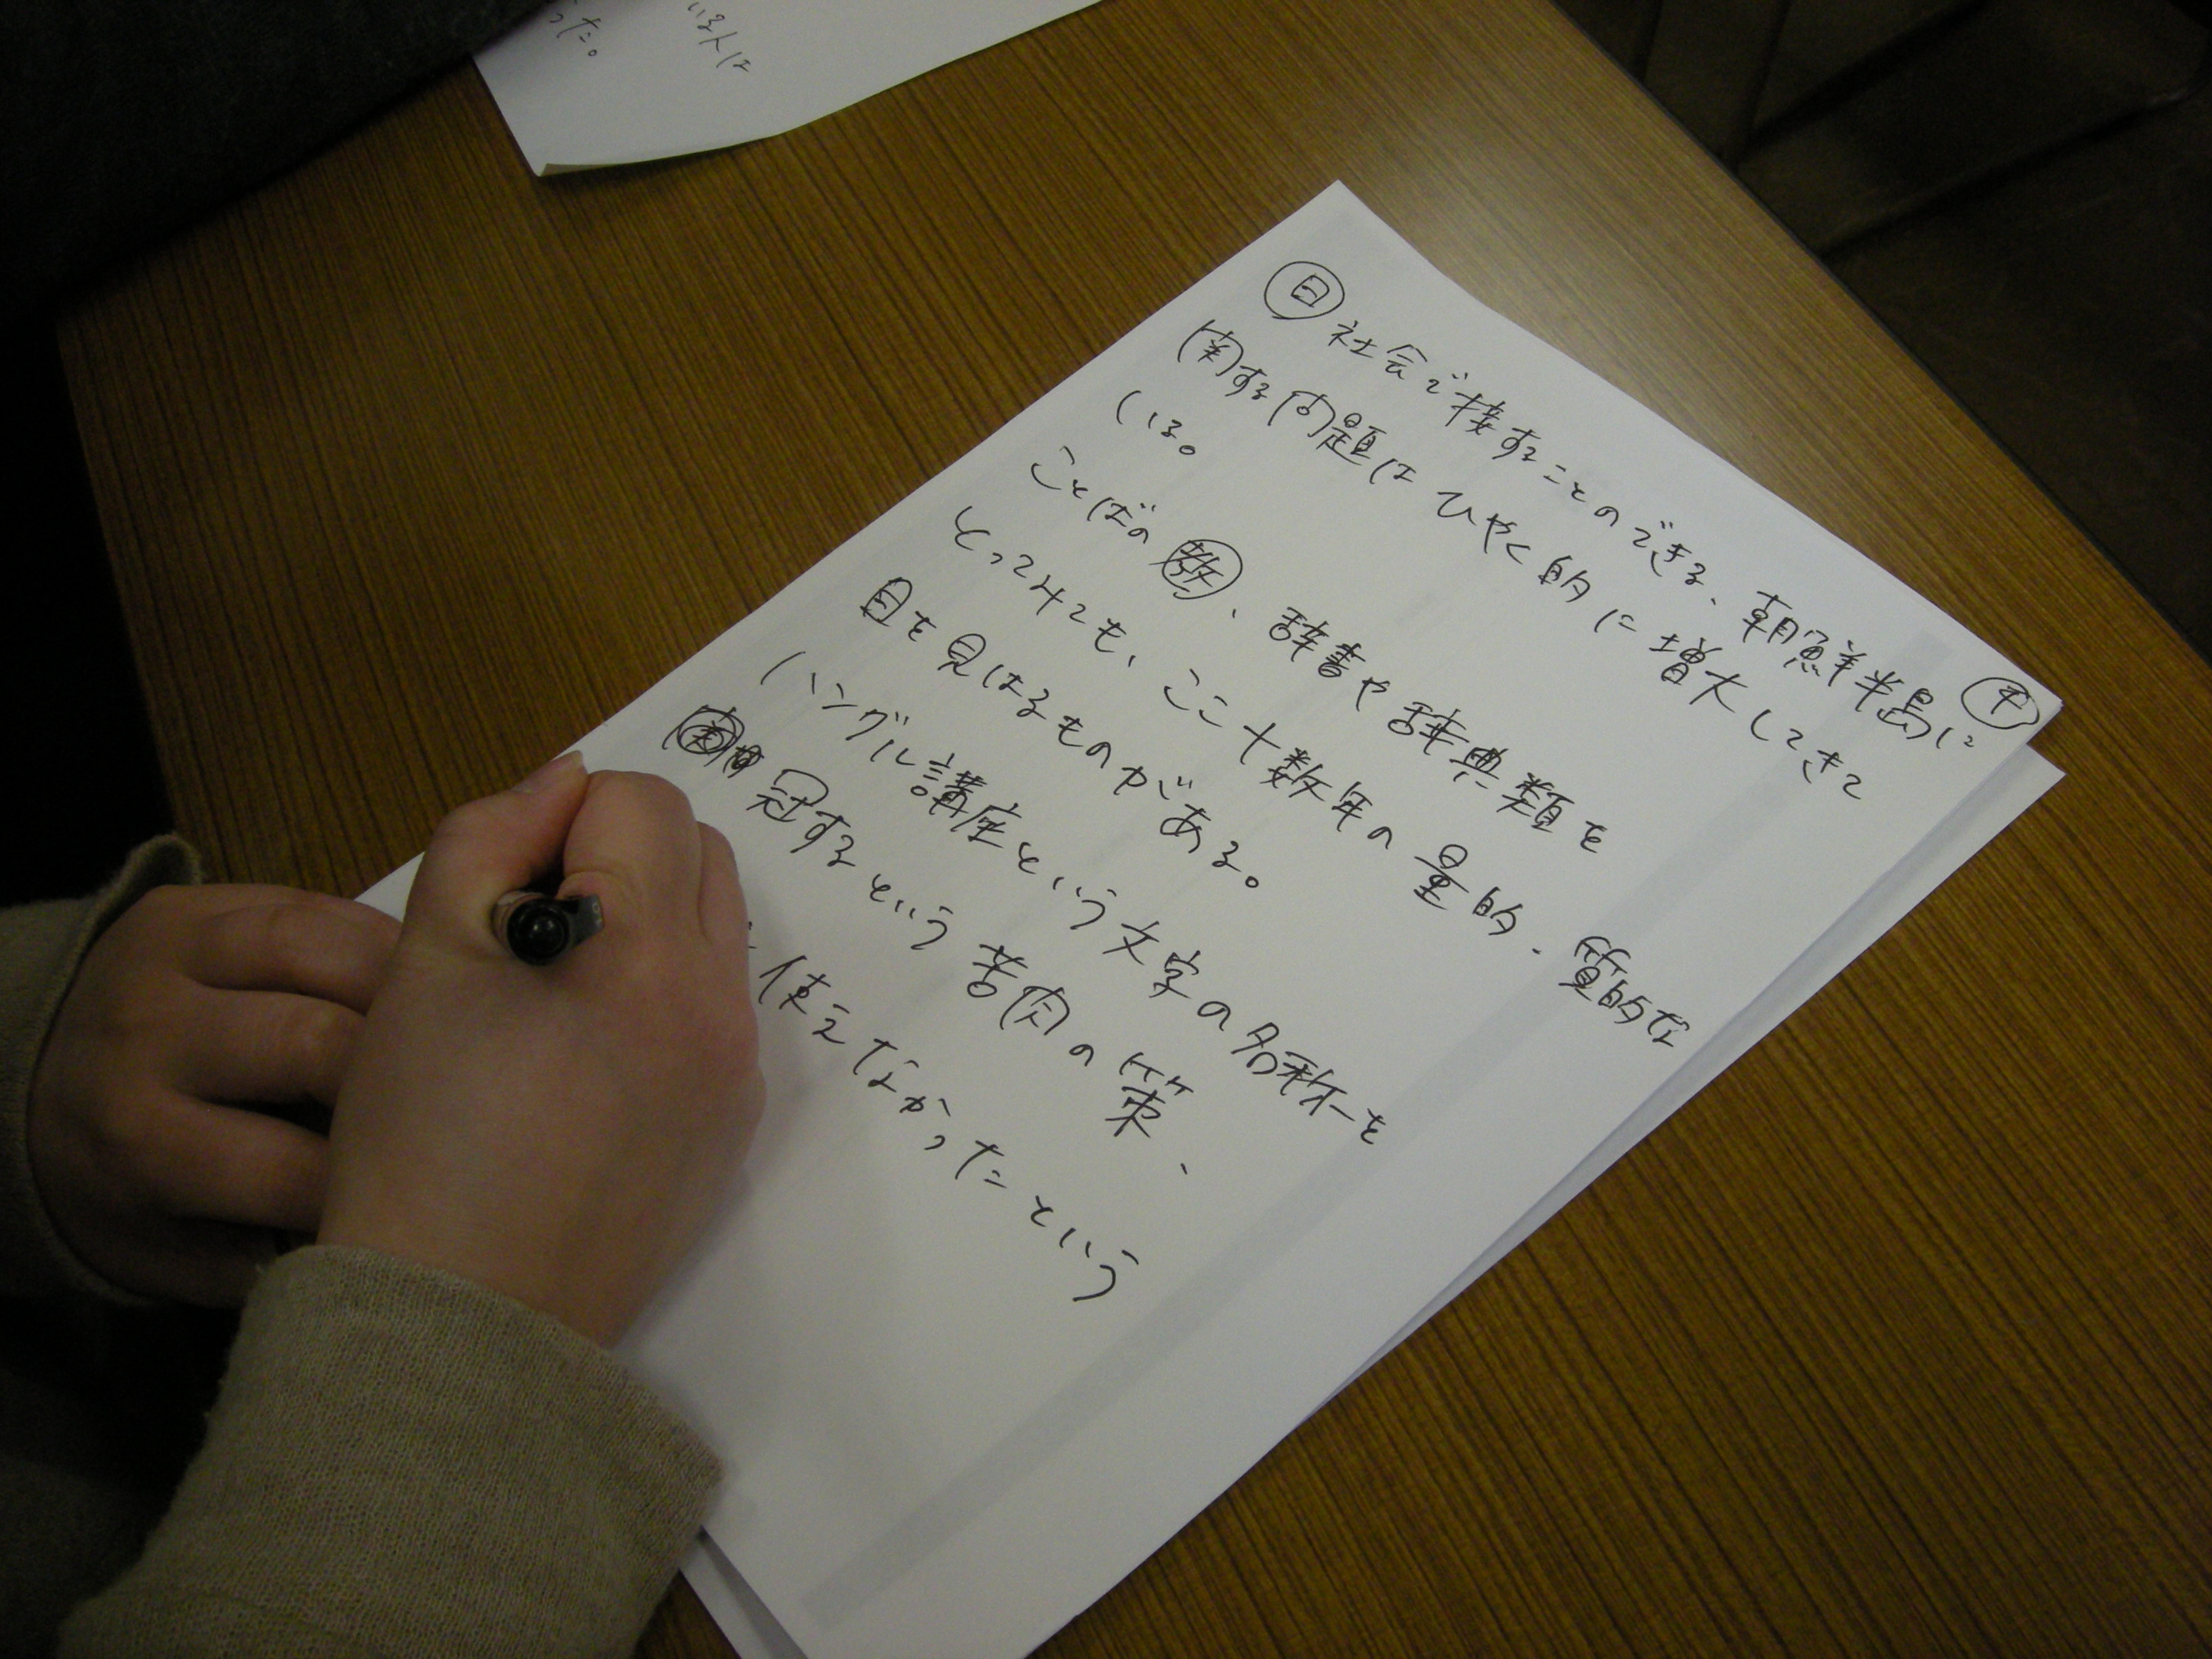 った。
いる人は
㊐社会で接することのできる、朝鮮半島に
関する問題はひやく的に増大してきて
いる。
ことばの数、辞書や辞典類を
とってみても、ここ十数年の量的、質的な
目を見はるものがある。
ハングル講座という文字の名称を
冠するという苦肉の策、
使えなかったという